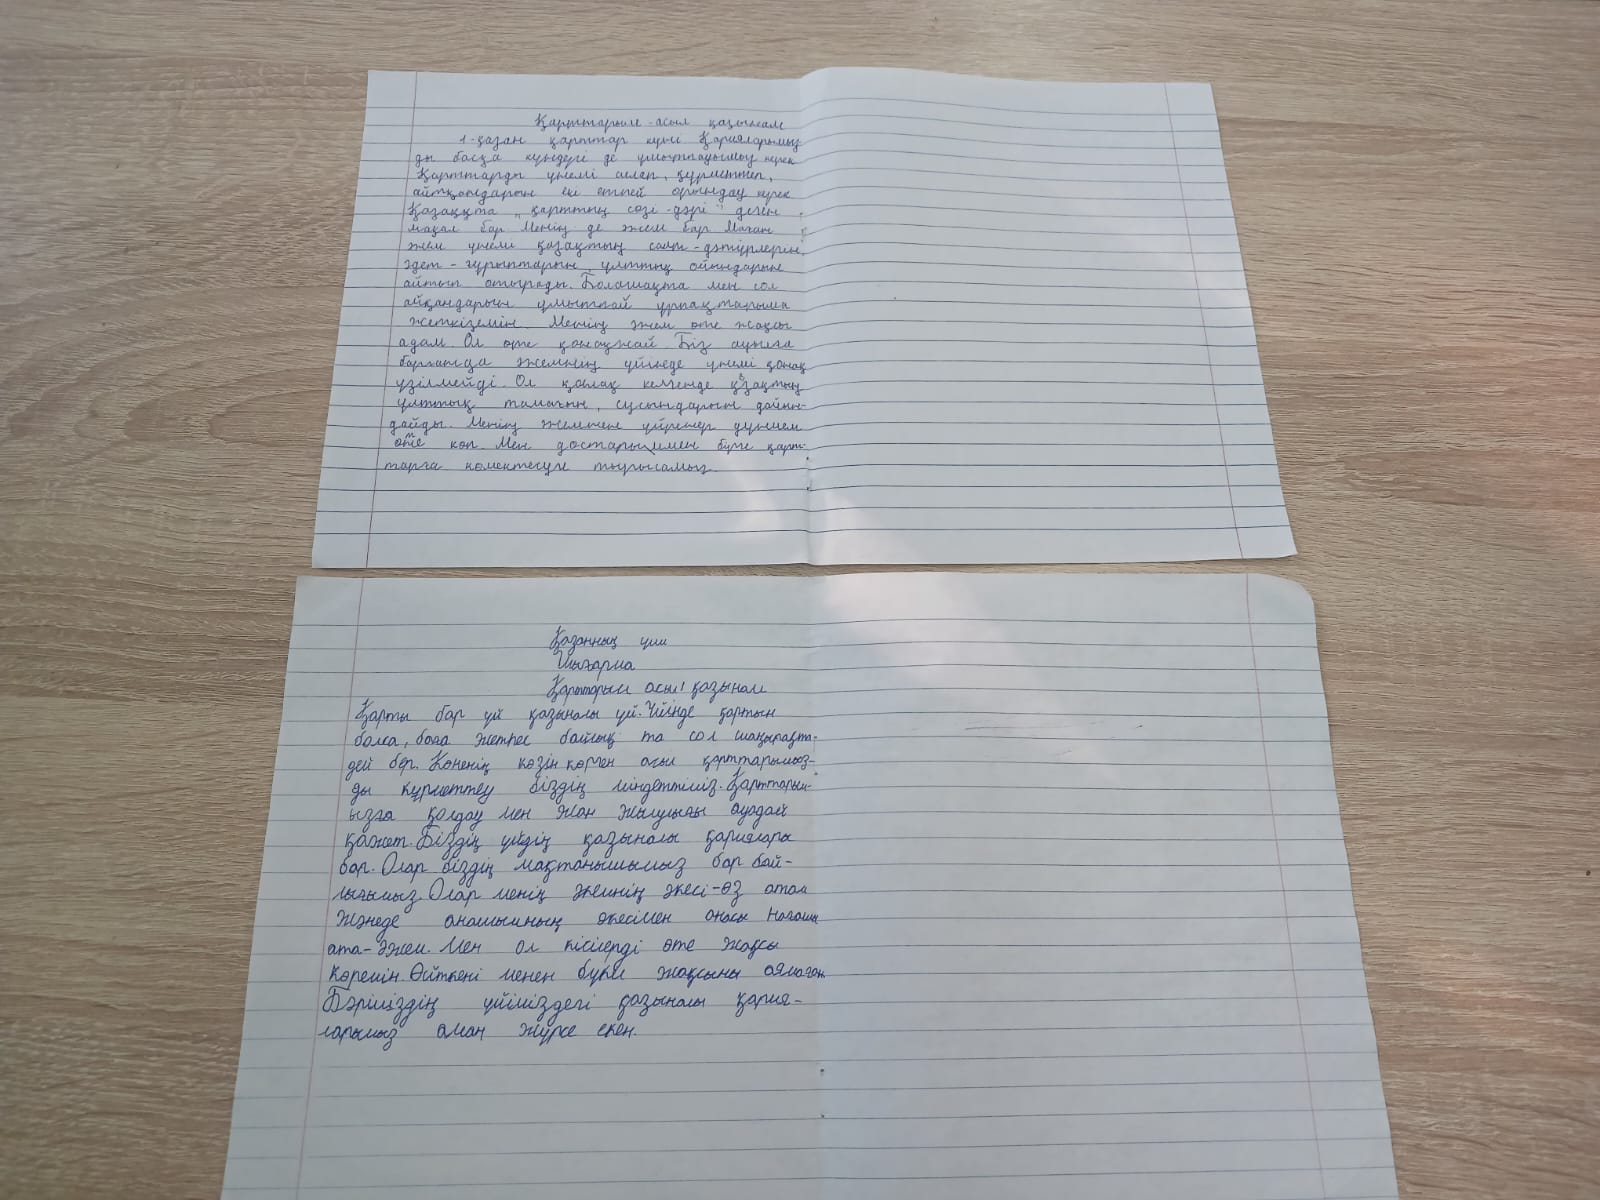 Қарттарым - асыл қазынам
1-қазан қарттар күні Қарияларымыз
ды басқа күндері де ұмытпауымыз керек
Қарттарды үнемі сыйлап, құрметтеп,
айтқандарын екі етпей орындау керек
Қазақта "қарттың сөзі - дәрі" деген
мақал бар Менің де әжем бар Маған
әжем үнемі қазақтың салт-дәтүрлерін,
әдет - ғұрыптарын, ұлттық ойындарын
айтып отырады. Болашақта мен сол
айқандарын ұмытпай ұрпақтарыма
жеткіземін. Менің әжем өте жақсы
адам. Ол өте қонақжай. Біз ауылға
барғанда әжемнің үйінеде үнемі қонақ
үзілмейді. Ол қонақ келгенде қазақтың
ұлттық тамағын, сусындарын дайын-
дайды. Менің әжемнен үйренер дүнием
өте көп. Мен достарыммен бірге қарт-
тарға көмектесуге тырысамыз.
Қазанның үші
Шығарма
Қарттарым асыл қазынам
Қарты бар үй қазыналы үй. Үйінде қартың
болса, баға жетпес байлық та сол шаңырақта-
дей бер. Көненің көзін көрген асыл қарттарымыз-
ды құрметтеу біздің міндетіміз. Қарттарым-
ызға қолдау мен жан жылуығы ауадай
қажет. Біздің үйдің қазыналы қариялары
бар. Олар біздің мақтанышымыз бар бай-
лығымыз. Олар менің әкемнің әкесі-өз атам
Жәнеде анашымның әкесімен анасы Нағашы
ата-әжем. Мен ол кісілерді өте жақсы
көремін. Өйткені менен бүкіл жақсыны аямаған
Бәріміздің үйіміздегі қазыналы қария-
ларымыз аман жүрсе екен.